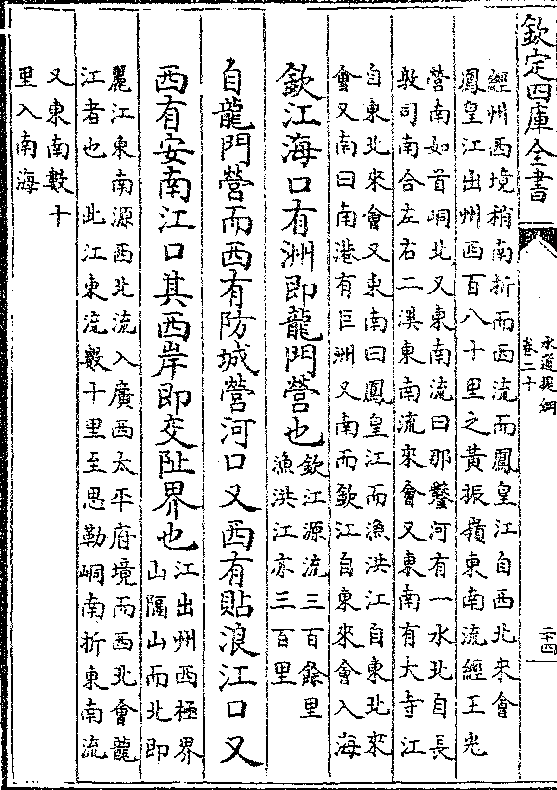 欽定四庫全書
水道提綱
卷二十
二十四
經州西境稍南折而西流而鳳皇江自西北來會
鳳皇江出州西百八十里之黄振嶺東南流經王光
營南如首峒北又東南流曰那鼇河有一水北自長
敦司南合左右二溪東南流來會又東南有大寺江
自東北來會又東南曰鳳皇江而漁洪江自東北來
會又南曰南港有巨洲又南而欽江自東來會入海
欽江海口有洲即龍門營也
欽江源流三百餘里
漁洪江亦三百里
自龍門營而西有防城營河口又西有貼浪江口又
西有安南江口其西岸即交阯界也
江出州西極界
山隔山而北即
麗江東南源西北流入廣西太平府境而西北會龍
江者也 此江東流數十里至思勒峒南折東南流
又東南數十
里入南海